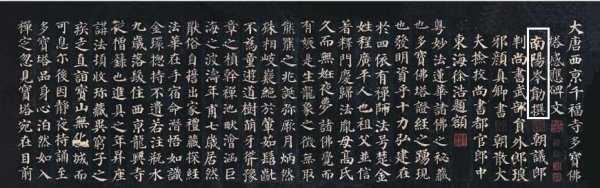 大唐西京千福寺多寶佛
塔感應碑文
南陽岑勛撰 朝議郎
判尚書武部員外郎琅
邪顏真卿書 朝散大
夫撿挍尚書都官郎中
東海徐浩題額
粵妙法蓮華諸佛之秘藏
也多寶佛塔證經之踴現
也發明資乎十力弘建在
於四依有禪師法号楚金
姓程廣平人也祖父並信
著釋門慶歸法胤母高氏
久而無妊夜夢諸佛覺而
有娠是生龍象之徵無取
熊羆之兆誕弥厥月炳然
殊相岐嶷絕於葷茹髫齔
不為童遊道樹萌牙聳豫
章之楨幹禪池畎澮涵巨
海之波濤年甫七歲居然
厭俗自誓出家禮藏探經
法華在手宿命潛悟如識
金環總持不遺若注瓶水
九歲落髮住西京龍興寺
從僧籙也進具之年昇座
講法頓收珍藏異窮子之
疾走直詣寶山無化城而
可息尔後因靜夜持誦至
多寶塔品身心泊然如入
禪定忽見寶塔宛在目前